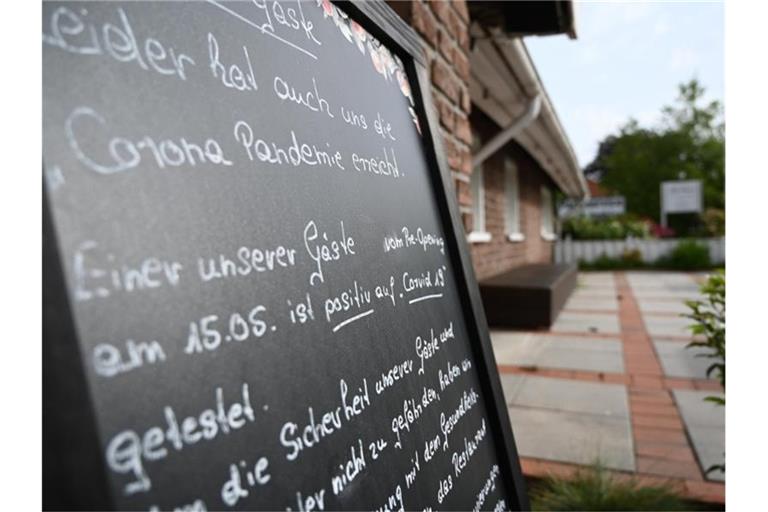 Gäste
Leider hat uns auch uns die
Corona Pandemie erreicht.
Einer unserer Gäste vom Pre-Opening
am 15.05. ist positiv auf "Corvid 19"
getestet.
die Sicherheit unserer Gäste und
nicht zu gefährden, haben wir
mit dem Gesundheits-
das Restaurant